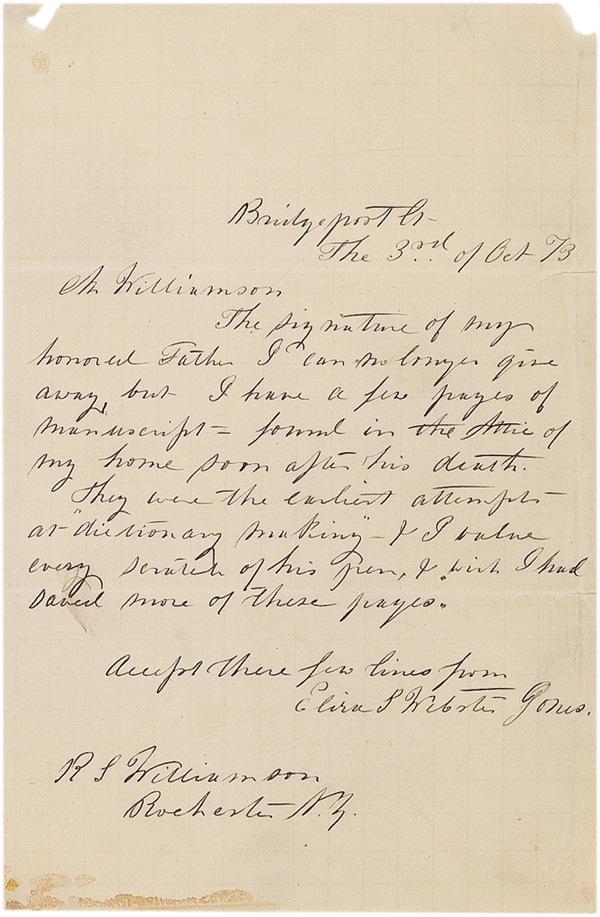 Bridgeport Ct-
The 3rd. of Oct 73
Mr Williamson
The signature of my
honored Father I can no longer give
away, but I have a few pages of
manuscript = found in the Attic of
my home soon after his death.
They were the earliest attempts
at "dictionary making" - & I value
every scratch of his pen, & wish I had
saved more of these pages.
Accept these few lines from
Eliza S Webster Jones.
R S Williamson
Rochester N.Y.